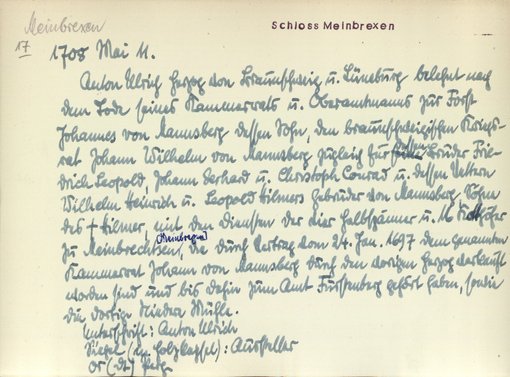 Meinbrexen
17
Schloss Meinbrexen
1708 Mai 11.
Anton Ulrich Herzog von Braunschweig u. Lüneburg belehnt nach
dem Tode seines Kammerrats u. Oberamtmanns zur Forst
Johannes von Mannsberg dessen Sohn, den braunschweigischen Kriegs-
rat Johann Wilhelm von Mannsberg zugleich für Brüder Frie-
drich Leopold, Johann Gerhard u. Christoph Conrad u. dessen Vettern
Wilhelm Heinrich u. Leopold Hilmers Gebrüder von Mannsberg Söhne
des † Hilmer, mit den Diensten der vier Halbspänner u. 16 Kothöfer
zu Meinbrechsen, (Meinbrexen) die durch Vertrag vom 24. Jan. 1697 dem genannten
Kammerrat Johann von Mannsberg durch den vorigen Herzog verkauft
worden sind und bis dahin zum Amt Fürstenberg gehört haben, sowie
die dortige Nieder Mühle.
Unterschrift: Anton Ulrich
Siegel (in Holzkapsel): Aussteller
Or (dt) Perg.